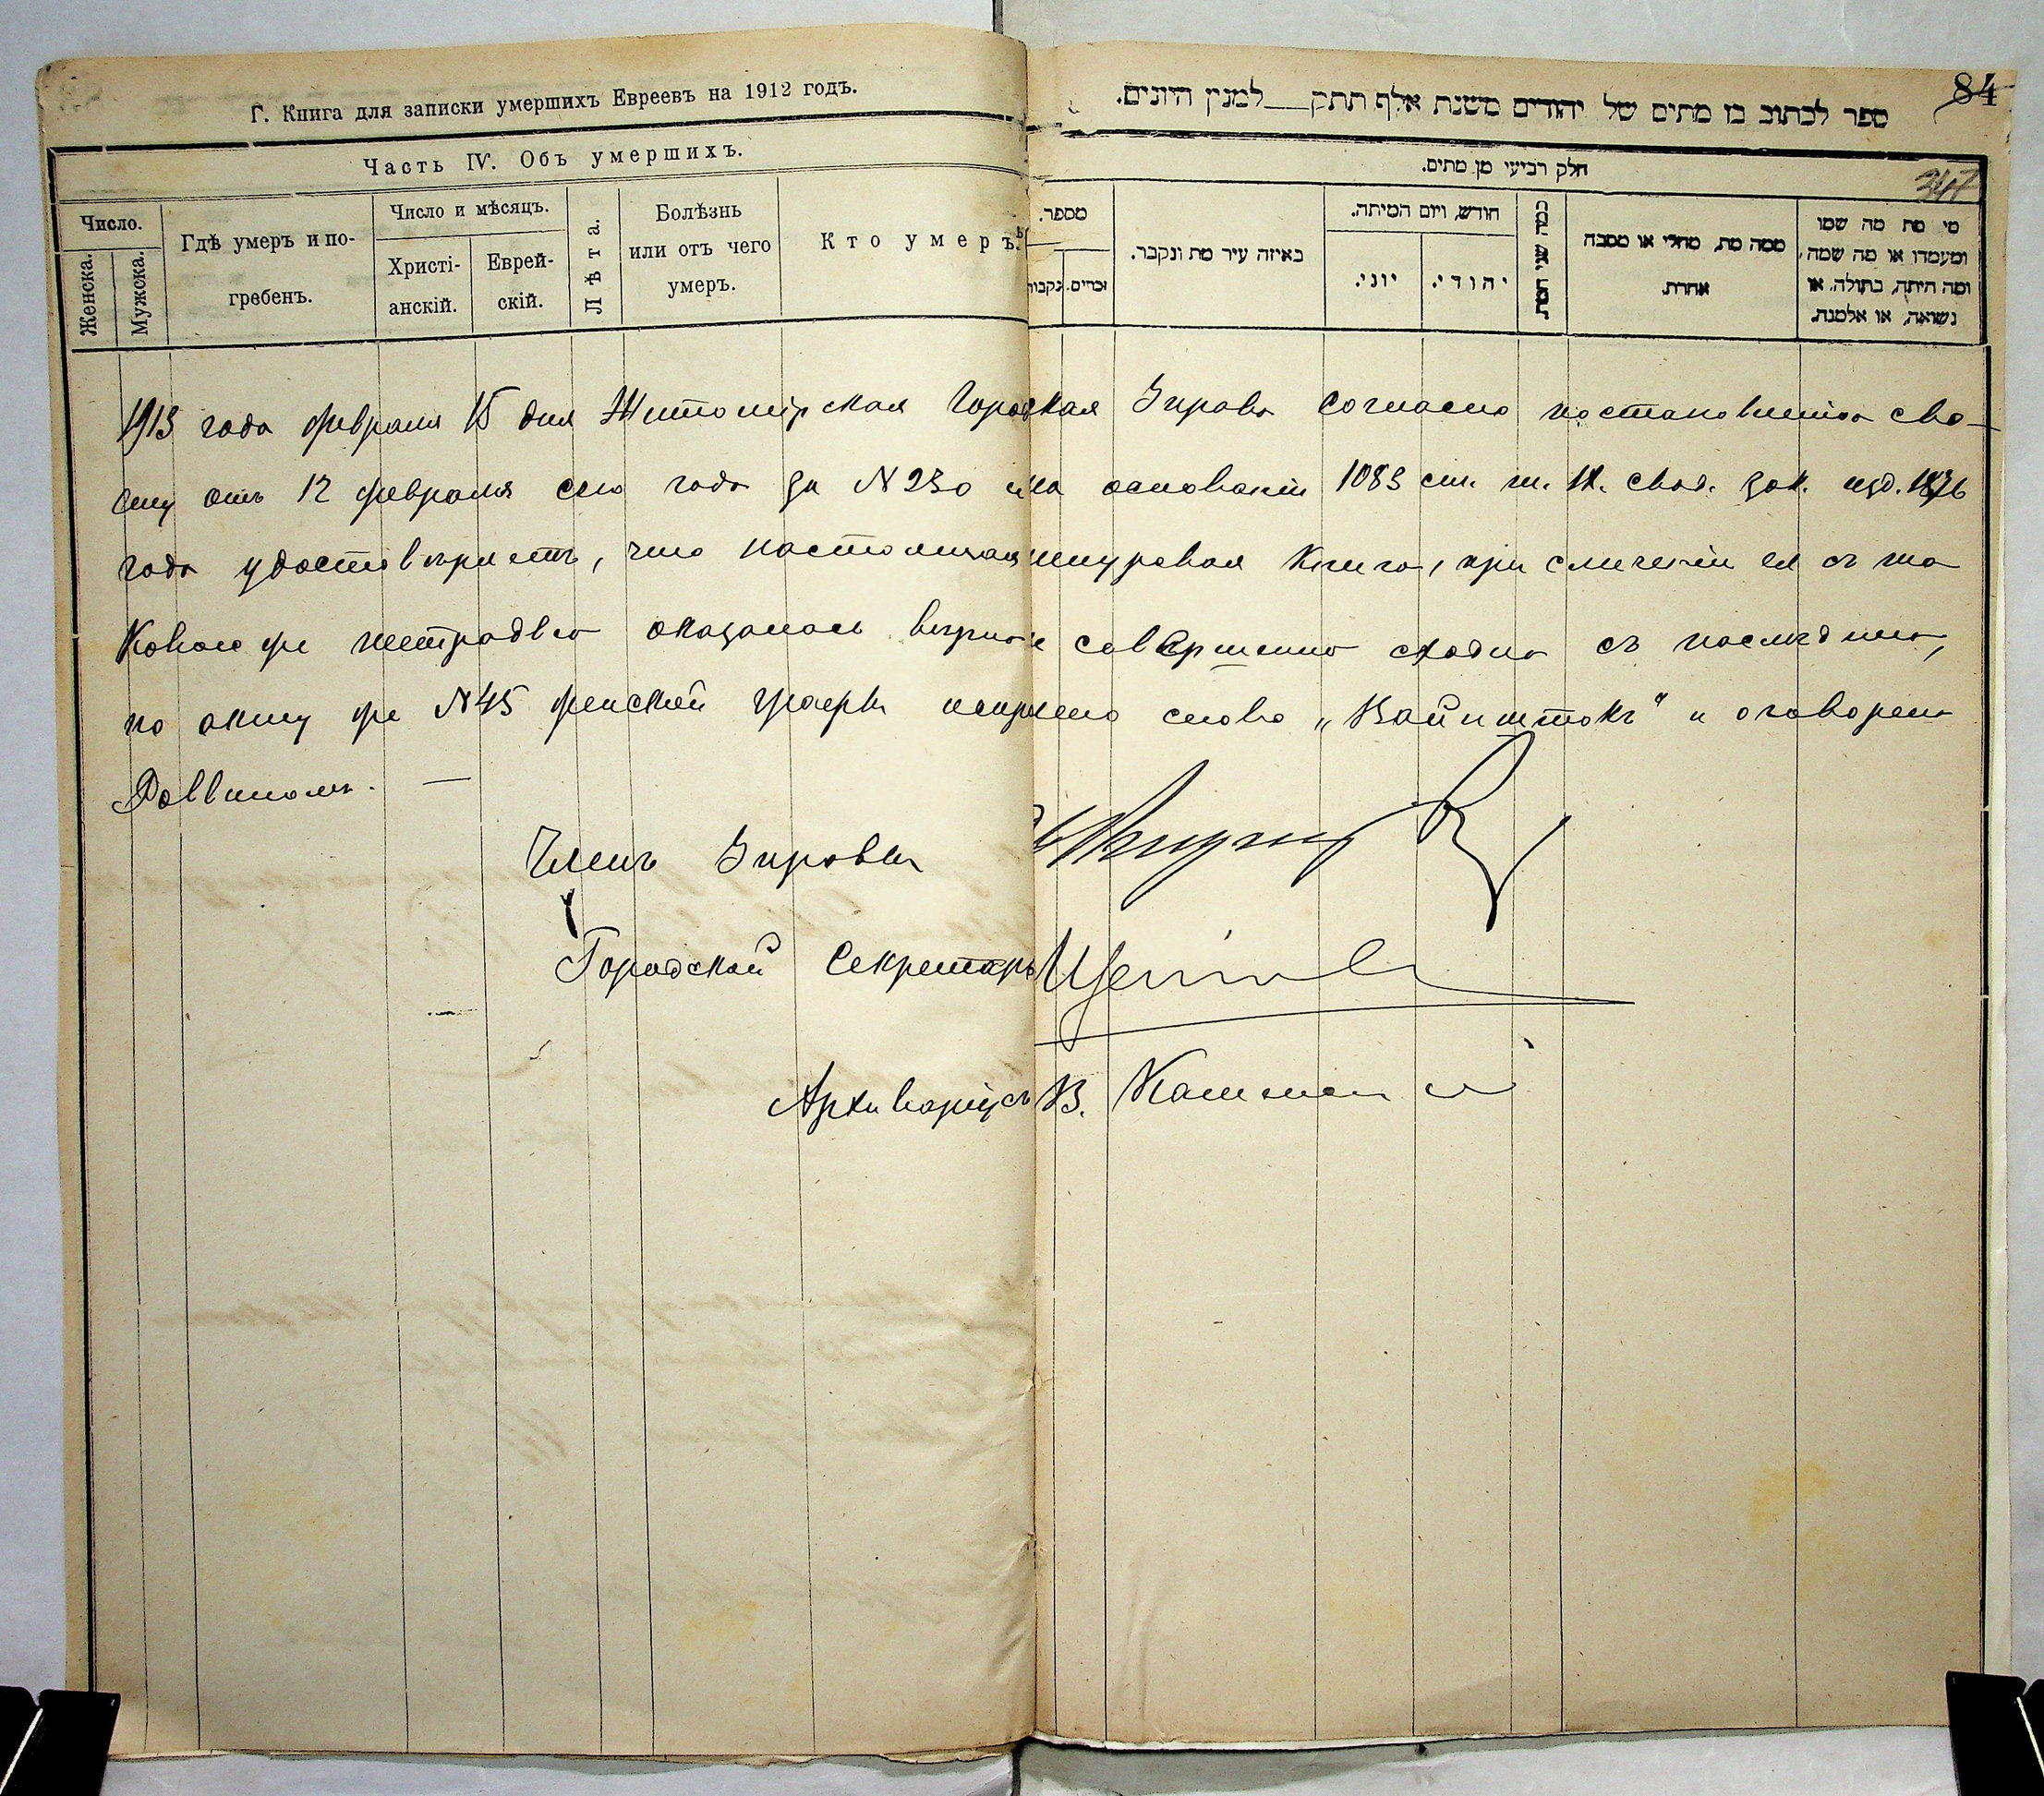 Г. Книга для записки умершихъ Евреевъ на 1912 годъ.
Часть IV. Объ умершихъ.
Число.
Женска.
Мужска.
Гдѣ умеръ и по-
гребенъ.
Число и мѣсяцъ.
Христі-
анскій.
Еврей-
скій.
Лѣта.
Болѣзнь
или отъ чего
умеръ.
Кто умеръ.
84
ספר לכתוב בו מתים של יהודים משנת אלף תתק__למנין היונים.
חלק רביעי מן מתים.
347
מספר.
נקבות
זכרים.
באיזה עיר מת ונקבר.
חודש, ויום המיתה.
יוני.
יהודי.
כמה שני המת
ממה מת, מחלי או מסבה
אחרת.
מי מת מה שמו
ומעמדו או מה שמה,
ומה היתה, בתולה, או
נשואה, או אלמנה.
1913 года февраля 15 дня Житомірская Городская Управа согласно постановленію сво-
ему отъ 12 февраля сего года за N 230 и на основаніи 1083 ст. т. IX. свод. зак. изд. 1876
года удостовѣряетъ, что настоящая шнуровая книга, при сличеніи ея съ та
ковою же тетрадью оказалась вѣрною и совершенно сходна съ послѣднею,
по акту же N 45 женской графы исправлено слово „Вайнштокъ" и оговорено
Раввиномъ. —
Членъ Управы
Городской Секретарь
Архиваріусъ В.